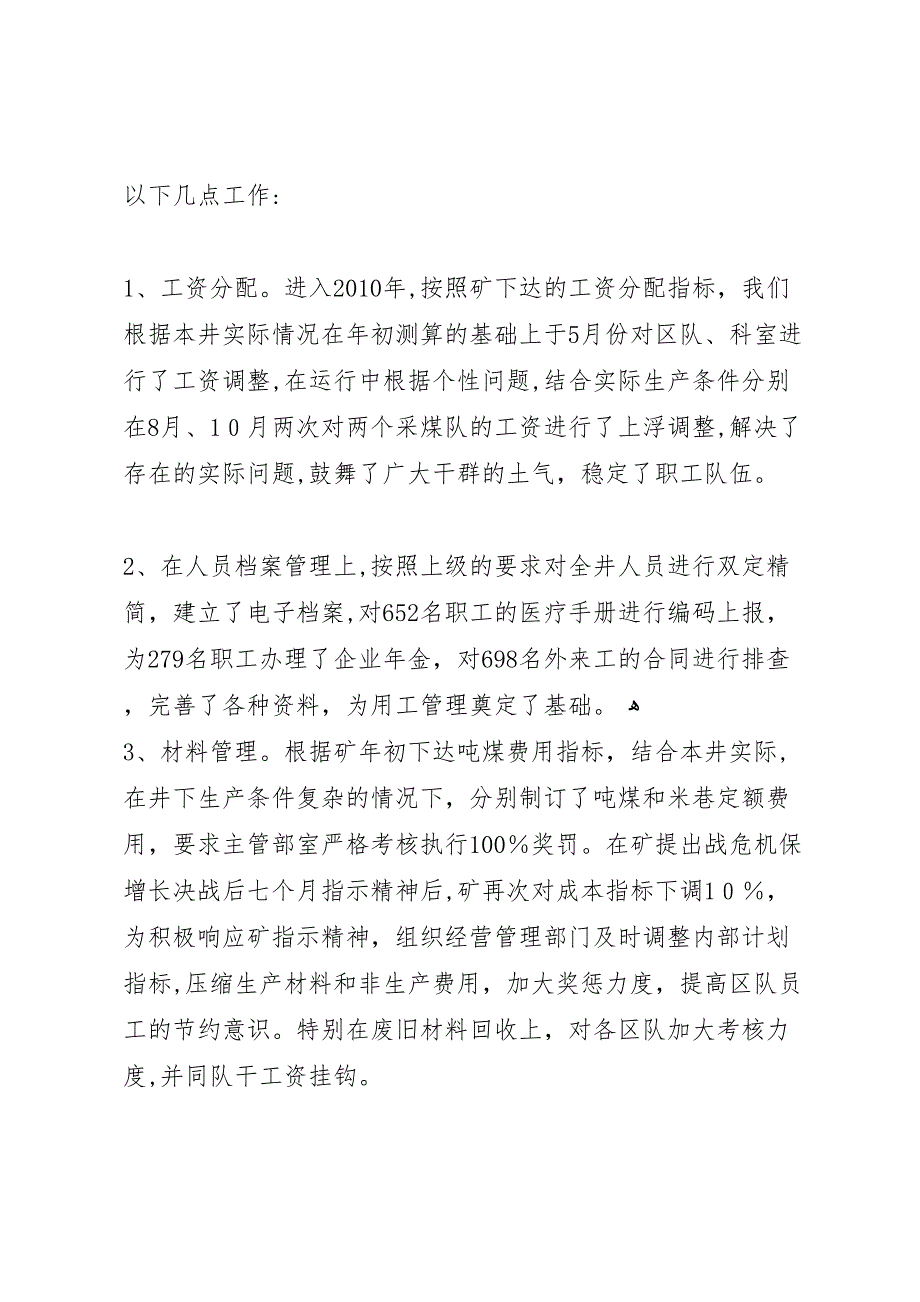 以下几点工作:
1、工资分配。进入2010年,按照矿下达的工资分配指标，我们
根据本井实际情况在年初测算的基础上于5月份对区队、科室进
行了工资调整,在运行中根据个性问题,结合实际生产条件分别
在8月、10月两次对两个采煤队的工资进行了上浮调整,解决了
存在的实际问题,鼓舞了广大干群的士气，稳定了职工队伍。
2、在人员档案管理上,按照上级的要求对全井人员进行双定精
简，建立了电子档案,对652名职工的医疗手册进行编码上报，
为279名职工办理了企业年金，对698名外来工的合同进行排查
，完善了各种资料，为用工管理奠定了基础。 ﻫ
3、材料管理。根据矿年初下达吨煤费用指标，结合本井实际,
在井下生产条件复杂的情况下，分别制订了吨煤和米巷定额费
用，要求主管部室严格考核执行100%奖罚。在矿提出战危机保
增长决战后七个月指示精神后,矿再次对成本指标下调10%，
为积极响应矿指示精神，组织经营管理部门及时调整内部计划
指标,压缩生产材料和非生产费用，加大奖惩力度，提高区队员
工的节约意识。特别在废旧材料回收上，对各区队加大考核力
度,并同队干工资挂钩。